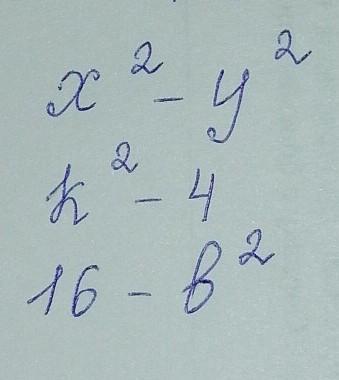 x² - y²
k² - 4
16 - b²